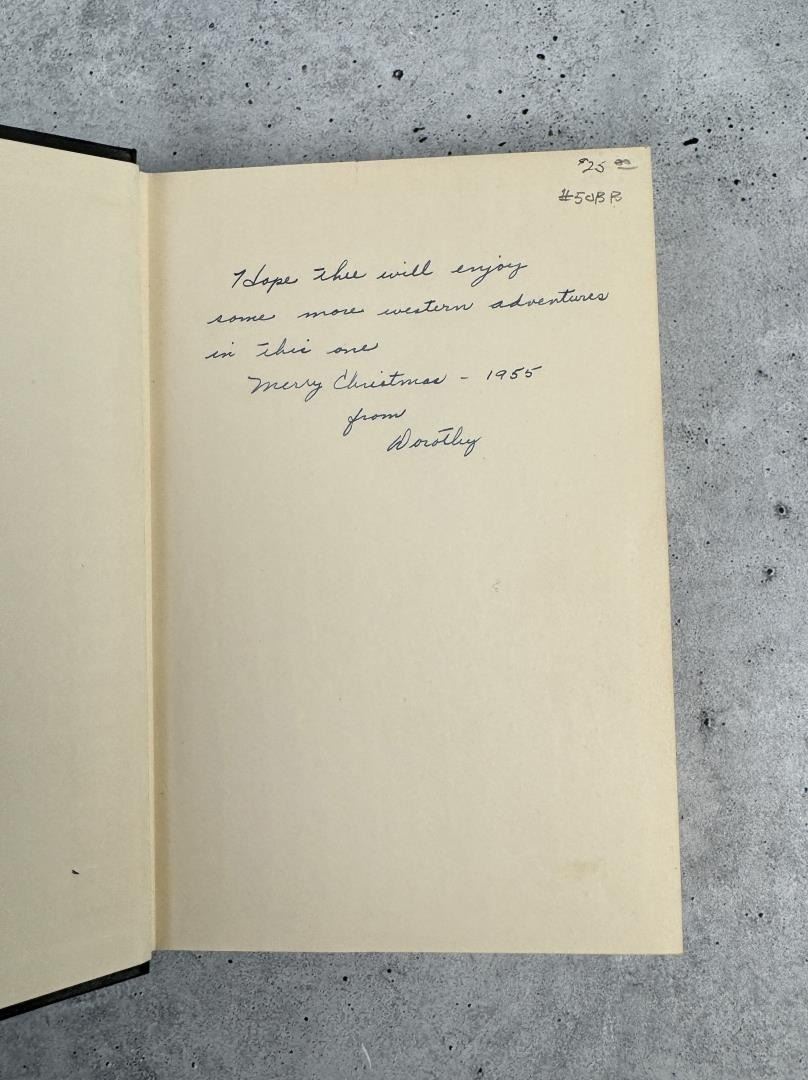 $25.00
#50BR
Hope thee will enjoy
some more western adventures
in this one
Merry Christmas - 1955
from
Dorothy